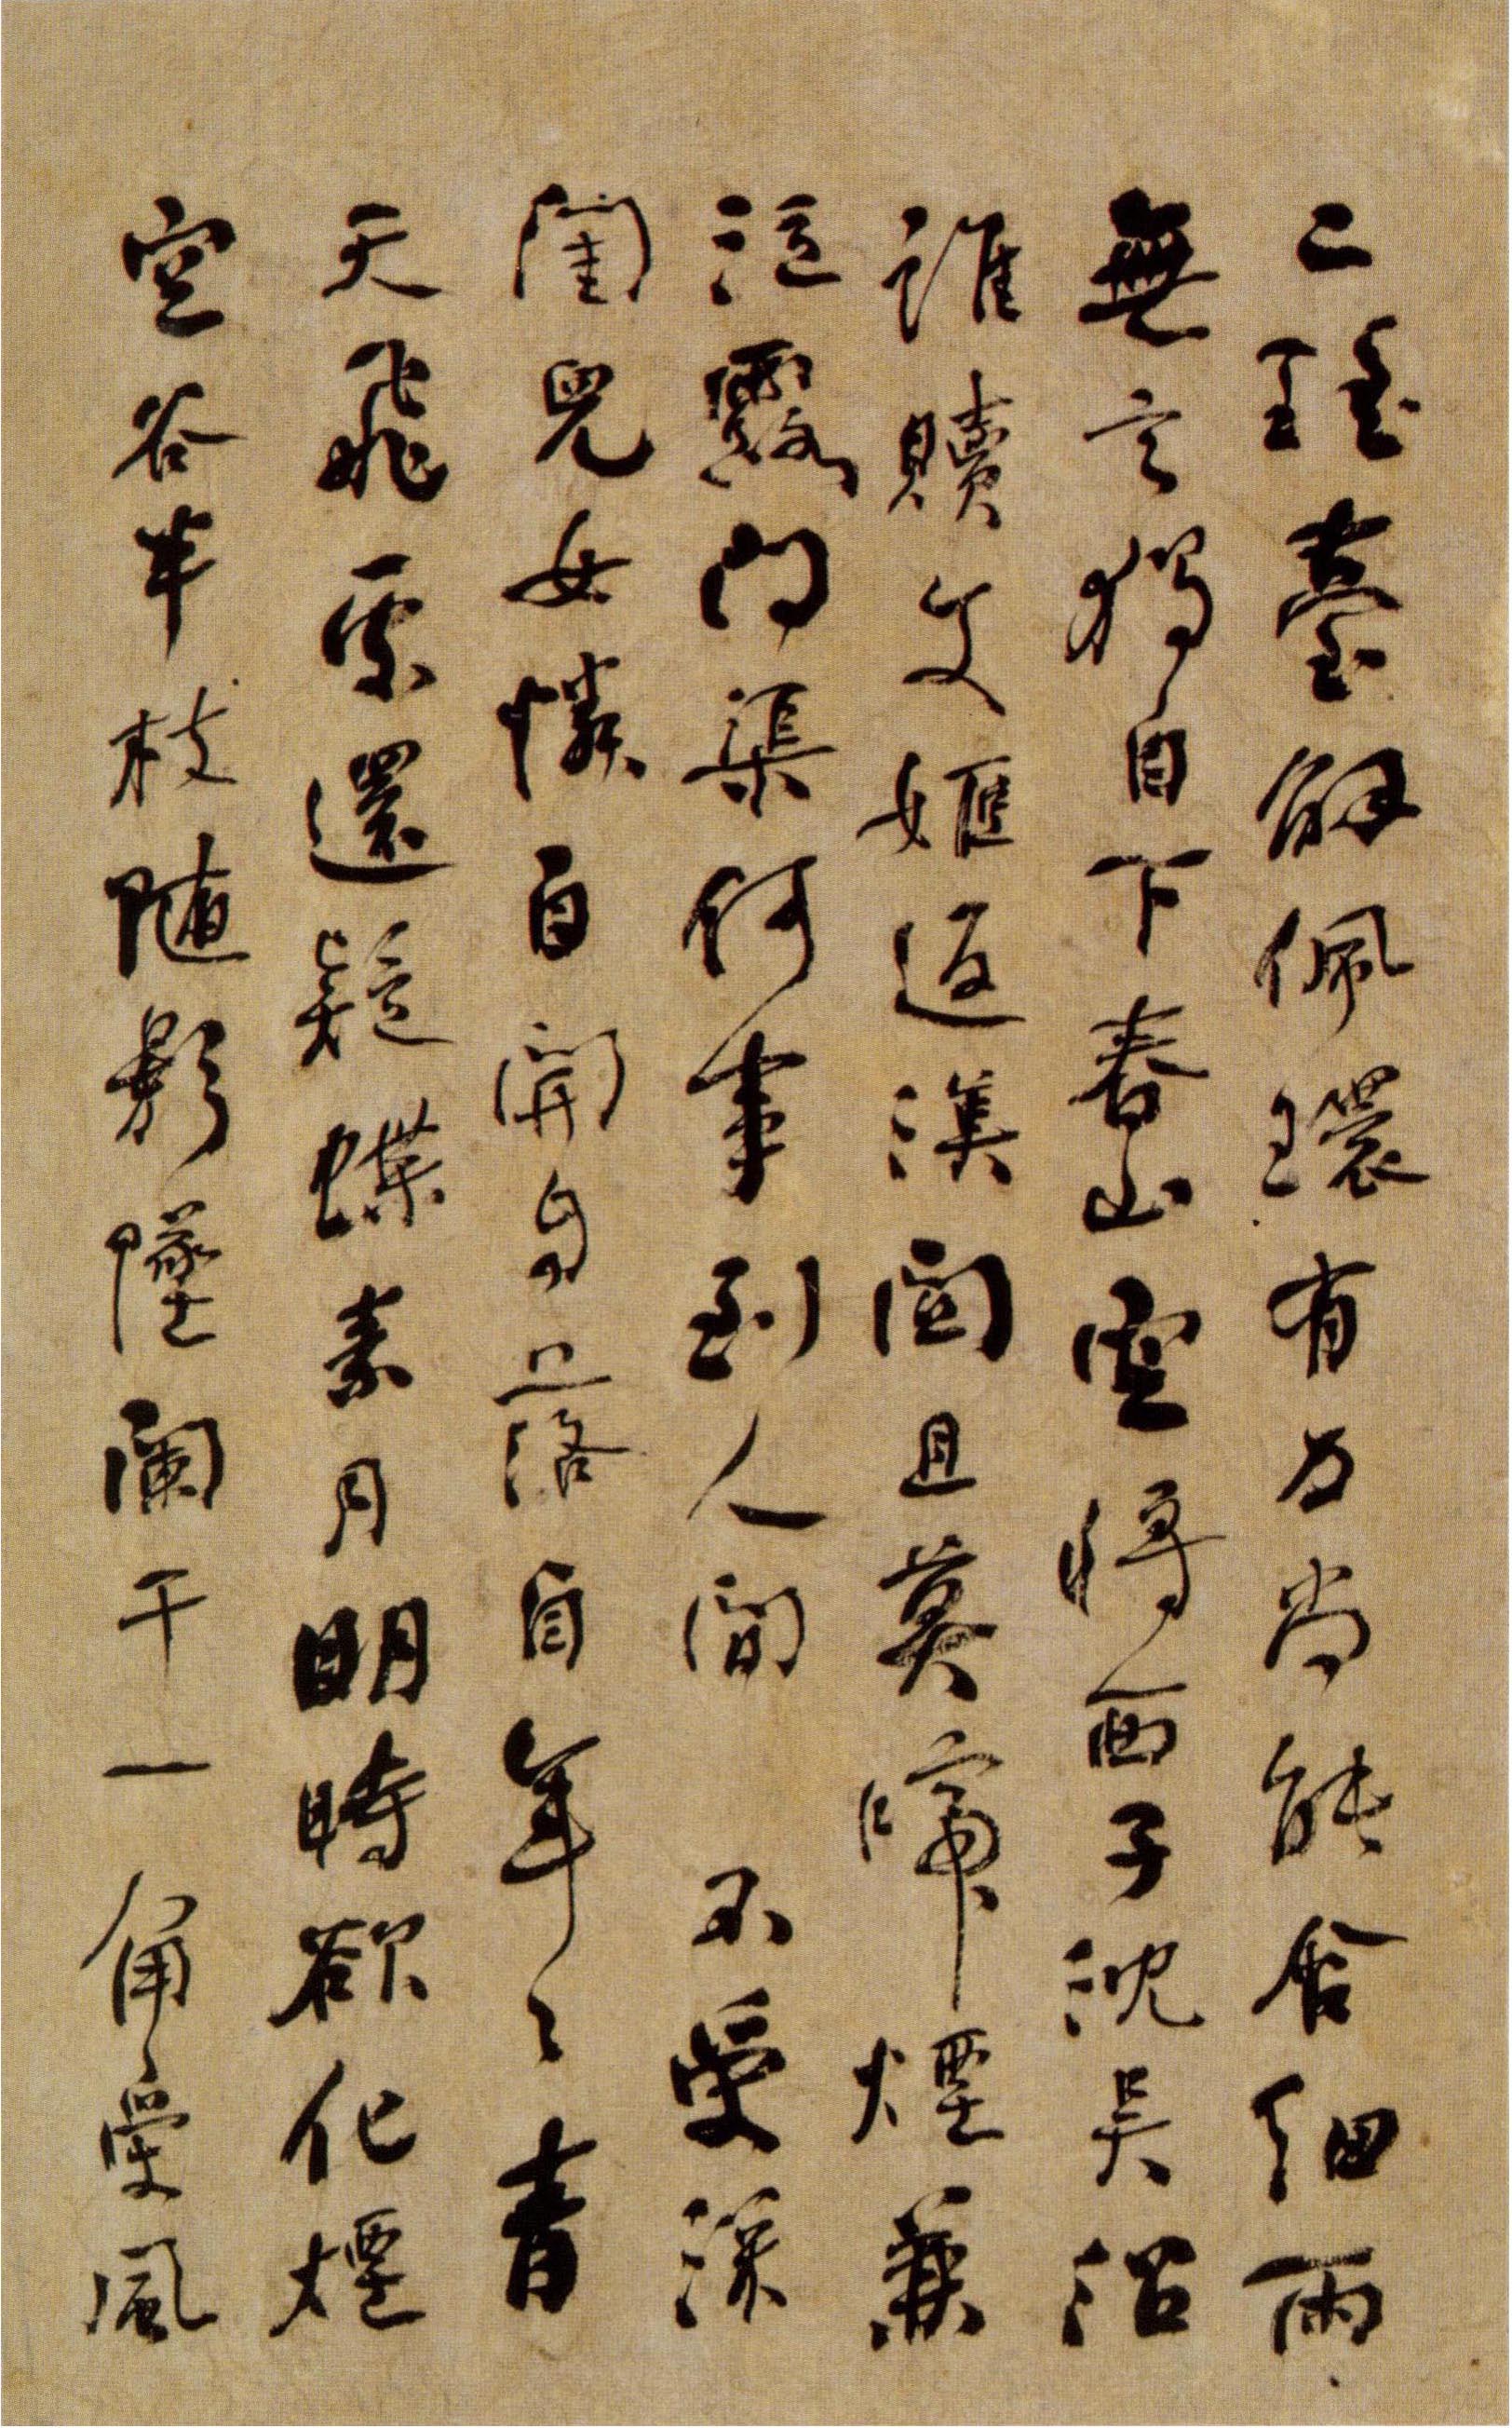 二瑤臺解佩環有力尚能含細雨
無言獨自下春山空將西子沈吳沼
誰贖文姬返漢關且莫啼煙兼
泣露問渠何事到人間　不受深
閨兒女憐自開自落自年々青
天飛處還疑蝶素月明時欲化煙
空谷半枝隨影墜闌干一角受風